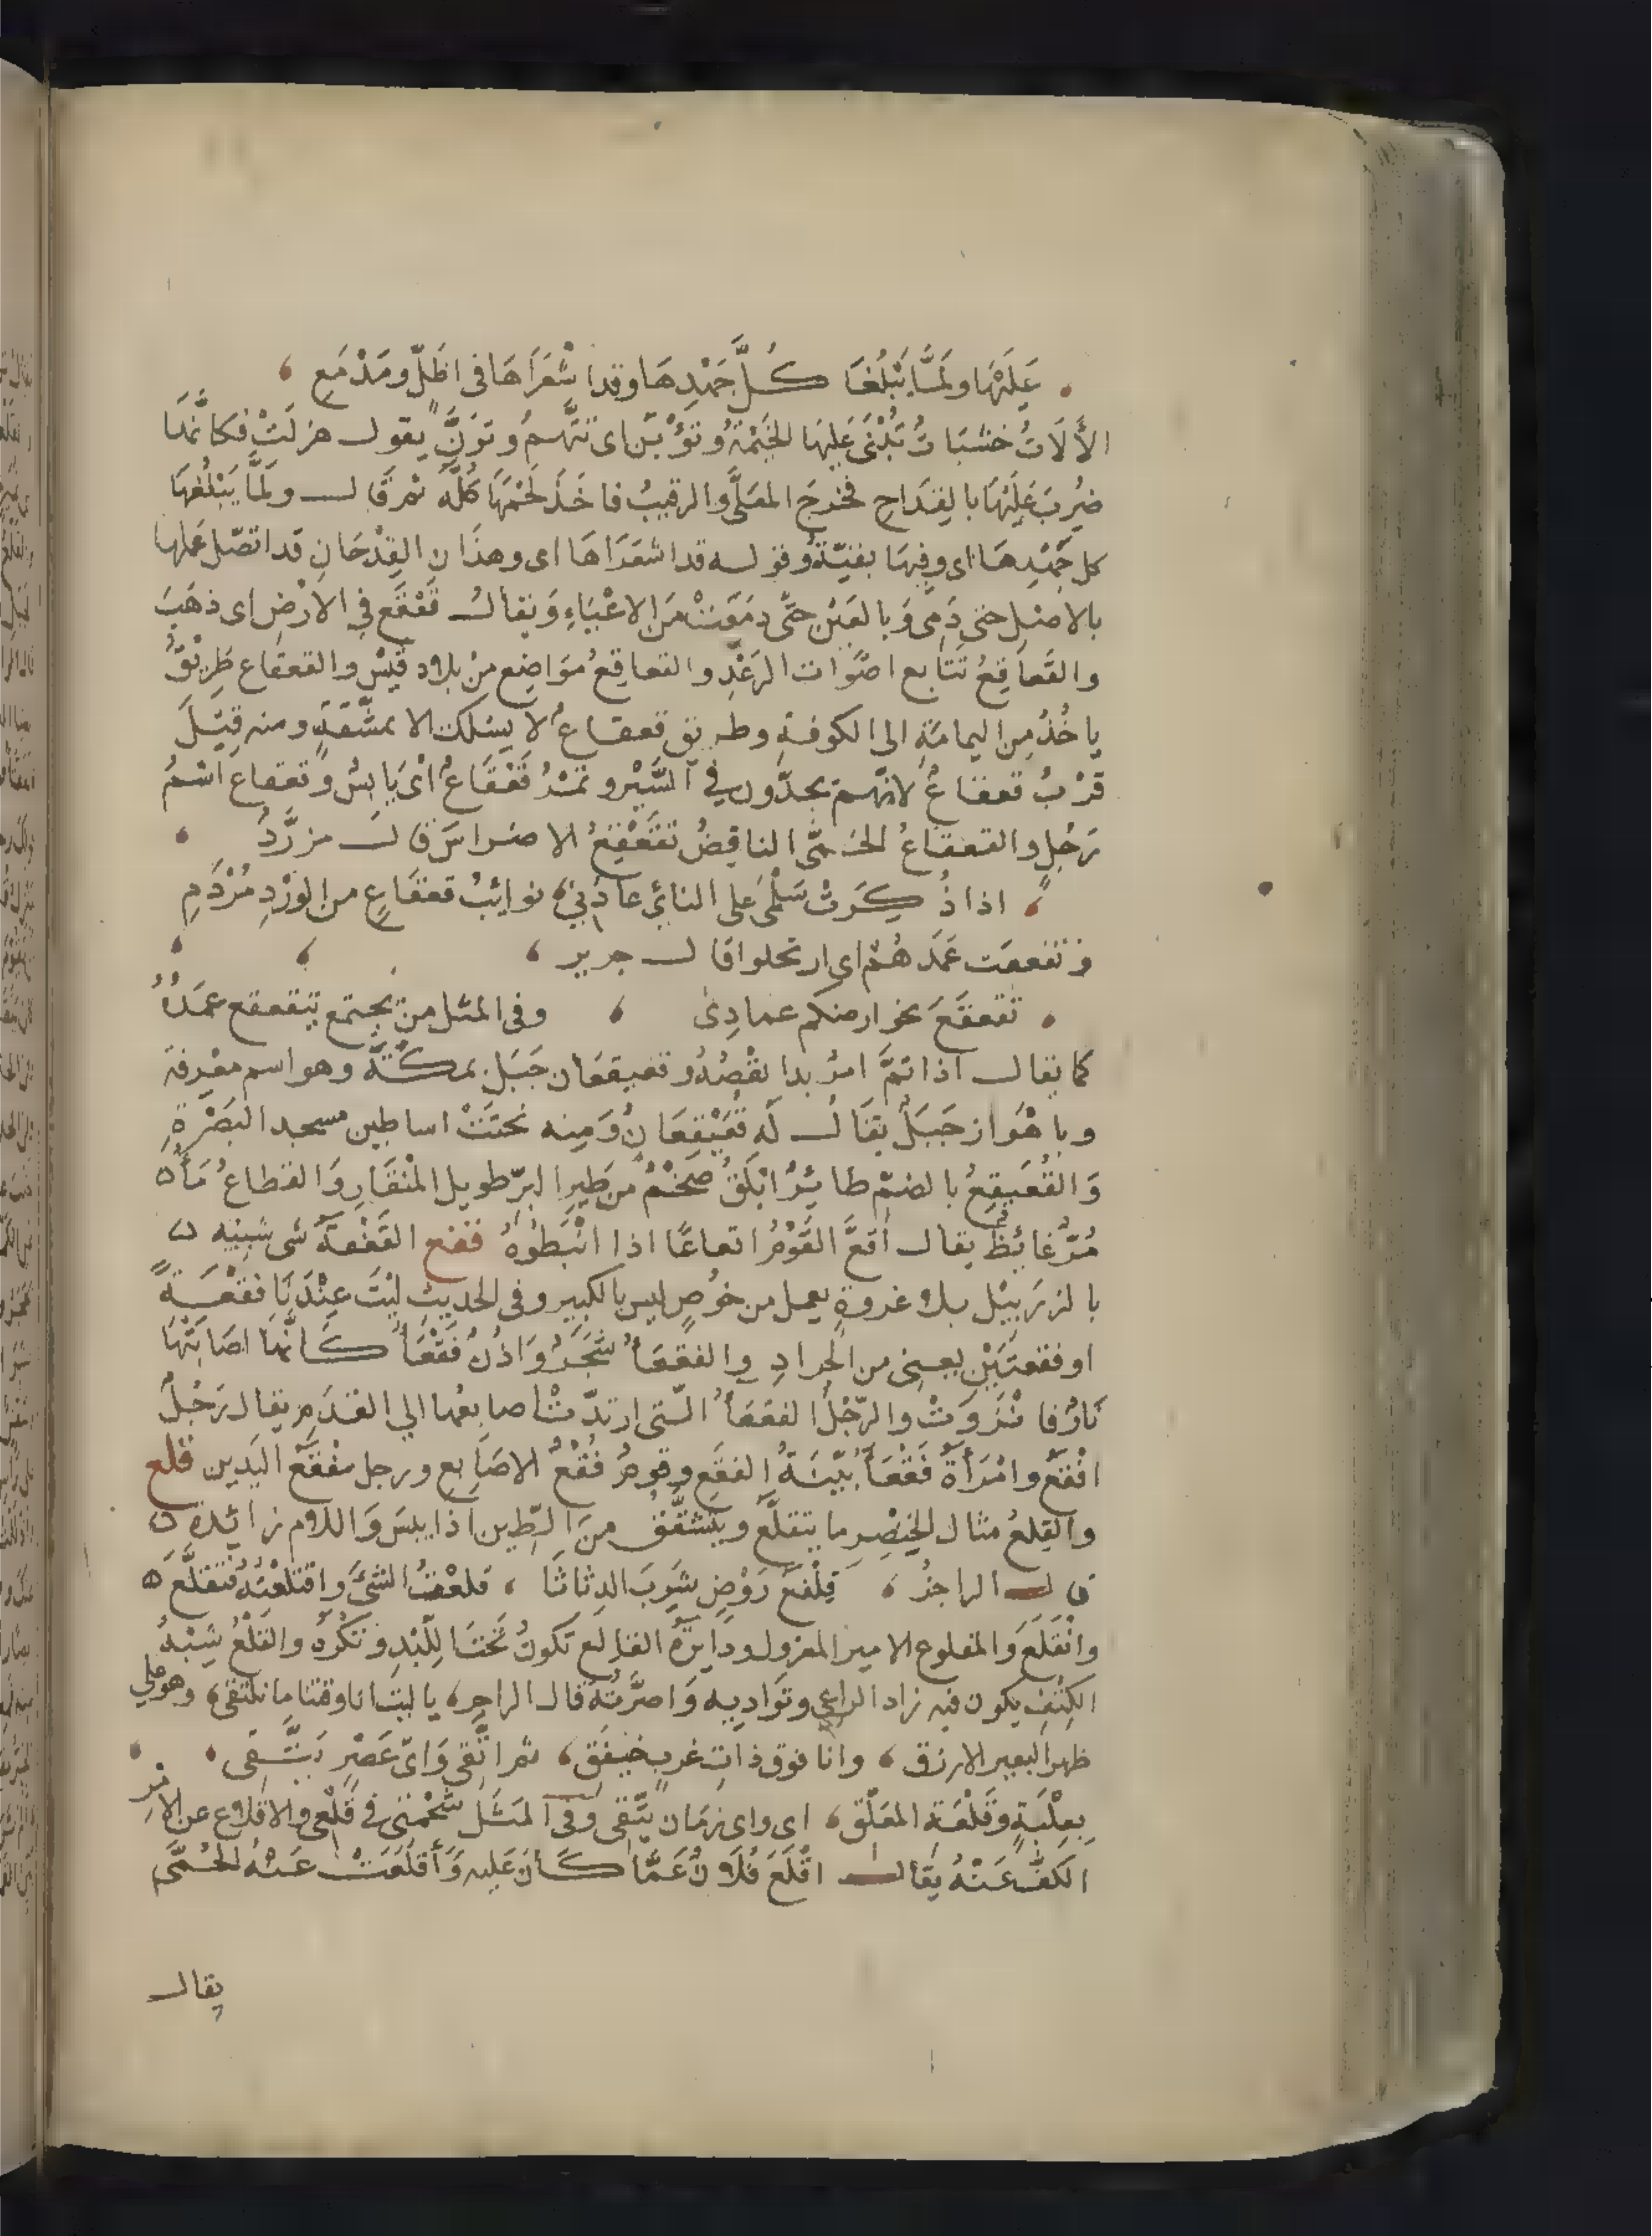 عَلَيْهَا ولَمَّا يَبْلُغَا كُلَّ جَهْدِهَا وقد اشْعَرَاهَا فى اظَلّ ومَدْمَعِ
الأَلَاتُ خشبَاتٌ تُبْنَى عَلَيهَا الخَيْمَةُ وتؤبَّن اى تتَّهمُ وتزَنّ يقول هزلَتْ فكانَّمَا
ضُرِبَ عَلَيْهَا بالقِدَاحِ فخرجَ المعَلَّى والرقيبُ فاخَذَ لَحْمَهَا كُلَّهُ ثم قال ولَمَّا يَبْلُغهَا
كل جَهْدِهَا اى وفِيهَا بقيّةٌ وقوله قد اشعَرَاهَا اى وهذَانِ القِدْحَانِ قد اتصّل عَملهَا
بالاصْلِ حتى دَمِىَ وَبالعَيْنِ حتَّى دمَعَتْ مَن الاعْيَاءِ وَيقالُ قَعْقَع فِي الارْضِ اى ذهَبَ
والقَعاقِعُ تتَابع اصْوات الرَعْدِ والقعاقِعُ مَوَاضِع مِنْ بلاد قَيْسٍ والقعقاع طَرِيْقٌ
ياخُذُ مِن اليمامَةِ الى الكوفةِ وطريق قعقاعٌ لا يسْلك الا بمشَقّةٍ ومنه قِيْلَ
قرْبٌ قعقاعٌ لانّهم يجدّون فِي السَّيْرِ وتمْرٌ قَعْقَاعٌ اىْ يَابِسٌ وقعقاع اسْمُ
رَجُلٍ والقعقاعُ الحُمَّى النافِضُ تقَعْقِعُ الاضراسَ قال مزرَّدٌ
اذا ذُكِرَتْ سَلْمَى عَلَى النائ عادَنِي نوائِبُ قعقَاعٍ من الوِرْدِ مُرْدَمِ
وتقعقعت عَمَدهُمْ اى ارتحلوا قال جرير
تَقعقَعَ نحو ارضكم عمادِى وفى المثل من يجتمع يتقعقع عمَدُهُ
كما يقال اذا تمَّ امرٌ بدا نقْصُهُ وقعيقعَان جَبَل بمكَّةَ وهو اسم معْرِفة
وباهْوَاز جَبَلٌ يقَالُ لَه قُعَيْقِعَانُ وَمِنه نحتَتْ اساطين مسجد البَصْرَةِ
وَالقُعَيقِعُ بالضمّ طائِرٌ ابْلَقُ ضخْمٌ من طَيرِ البرّ طويل المنْقَارِ وَالقطاعُ مَاءٌ
مُرٌّ غَائِظٌ يقال اقَعَّ القَوْمُ اقعاعًا اذا انْبَطُوهُ قفع القَفْعَةُ شى شبِيْه
بالزبَبِيْل بلا عروةٍ يعمل من خُوصٍ ليس بالكبير وفى الحديثِ لَيْتَ عِنْدَنَا قفْعَةً
او قفعتَيْنِ يعنى من الجرادِ والقفعَاءُ شَجَرٌ وَاذُنٌ قَفْعَاءُ كَانَّمَا اصَابَتْهَا
نَارٌ فانْزَوَتْ والرّجْلُ القفعَاءُ الّتى ارتدّتْ اصابعُها الى القدَمِ يقال رَجُلٌ
اقْفَعُ وامْرَأةٌ قَفْعَاءُ بَيّنَةُ القفَعِ وقومٌ قُفْعُ الاصَابِعِ ورجل مقْفّع اليَدين قلع
والقِلعُ مثال الخِنْصِرِ ما يتقلَّعُ ويتشقَّق مِنَ الطّين اذا يبس وَاللام زائدة
قال الراجزُ قِلْفعُ رَوْضٍ شَرِبَ الدِثاثا قلعْتُ الشىَّ واقتلعْتُهُ فتقلَّعَ
وانْقَلَعَ والمقلوع الامير المعزول ودايِرَةُ القالع تكونُ تحْتَ اللِّبْدِ وتكْرهُ والقَلْعُ شِبْهُ
الكِنْفِ يكون فيه زاد الراعى وتوَادِيِه وَاصِرَّتُهُ قال الراجز يا ليت انا وقنا ما نلتقى وهو على
ظهر البعير الاورق وانا فوق ذاتِ غربٍ خيفَقِ ثم اتَّقَى وَاىّ عَصْرٍ يَتَّقِى
بِعِلْبَةٍ وَقَلْعَةِ المعَلّقِ اى واى زمَانٍ يتّقِى وَفى المثَلِ شَحْمَتِى فى قَلْعِى والاقلاع عن الامْرِ
الكَفّ عَنْهُ يقَال اقْلَعَ فُلانٌ عَمَّا كَانَ عَليه وَأَقلَعَتْ عَنْهُ الحُمَّى
يقال